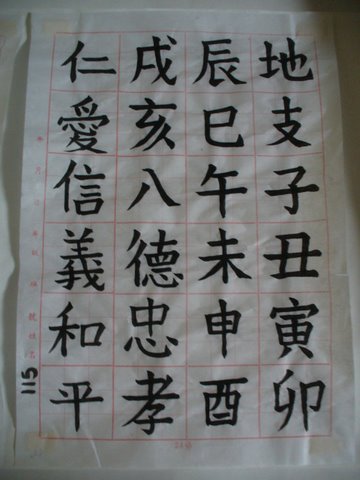 地支子丑寅卯
辰巳午未申酉
戌亥八德忠孝
仁愛信義和平
115